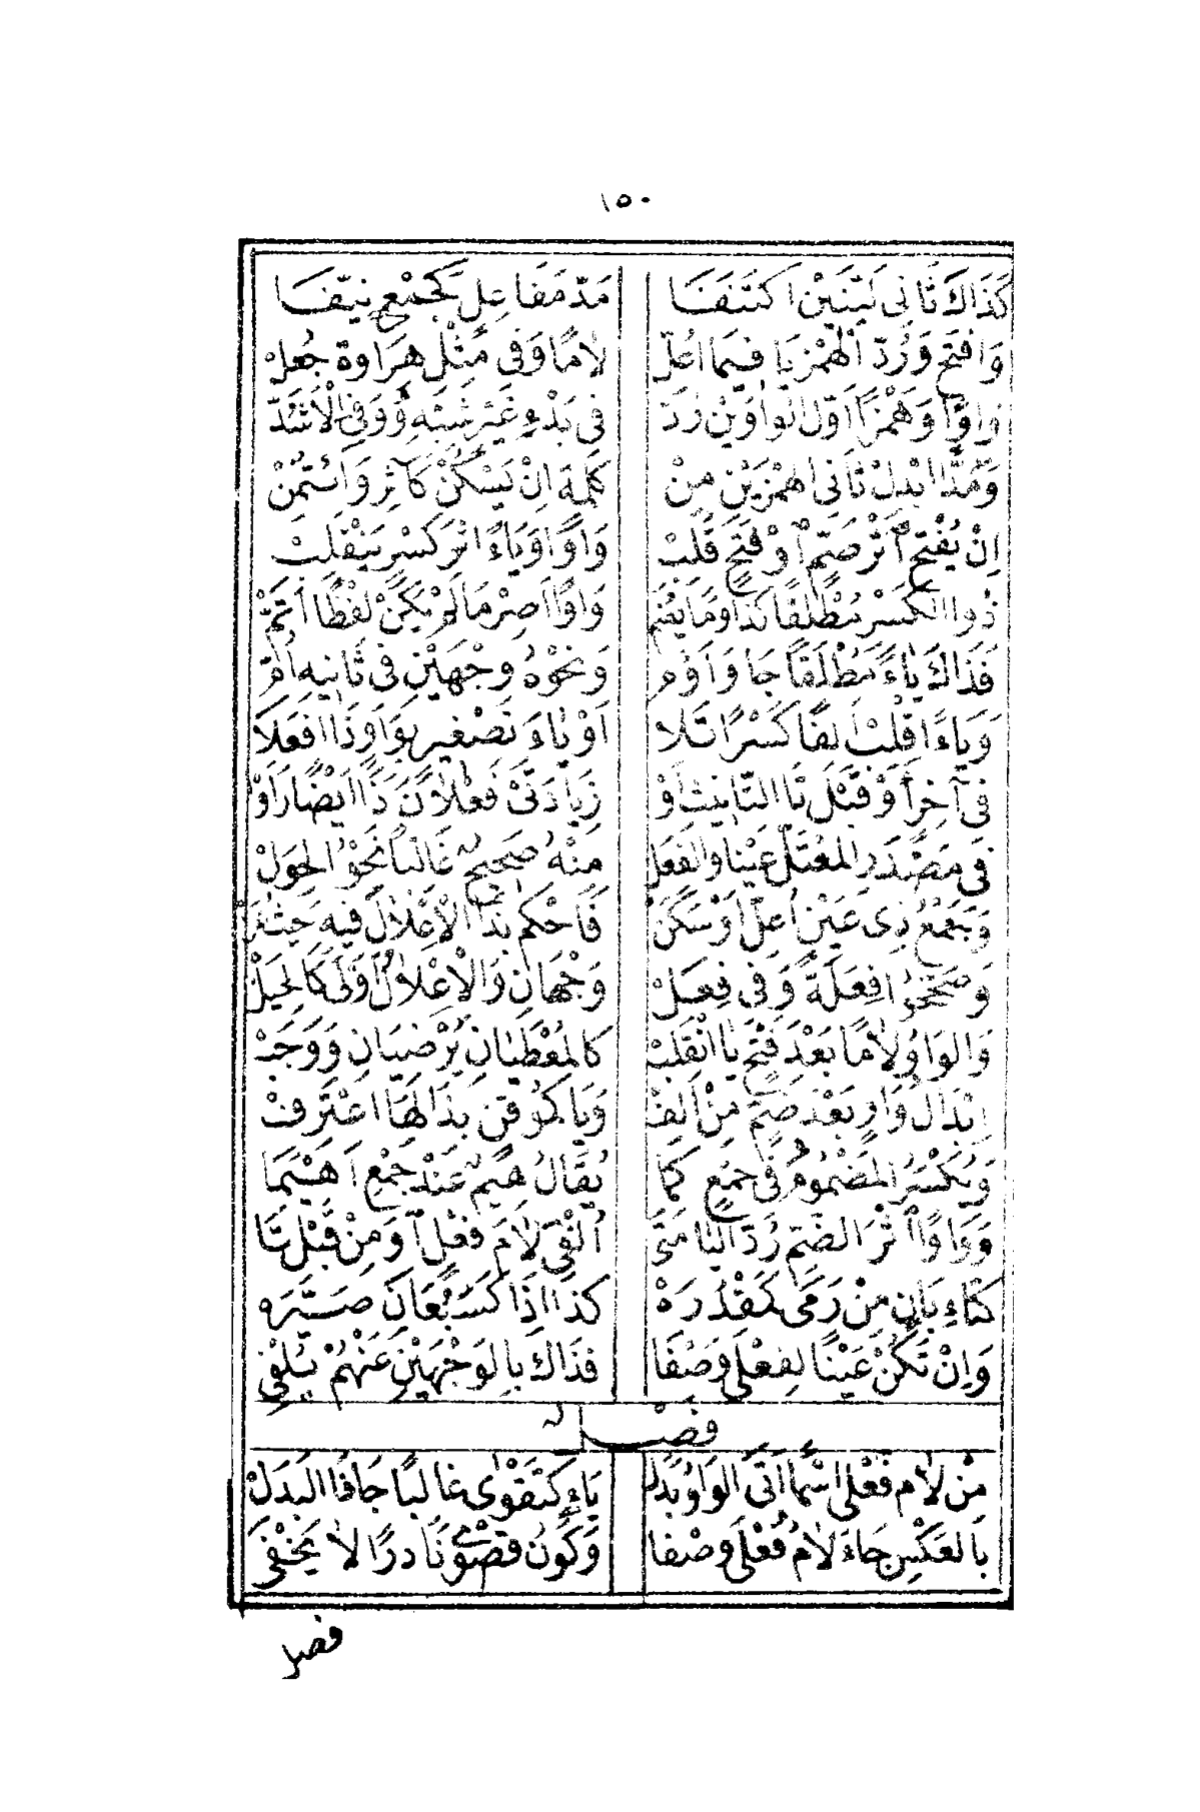 ١٥٠
كَذَاكَ ثَانِى لَيِّنَيْنِ اكْتَنَفَا مَدَّ مَفَاعِلَ كَجَمْعٍ نَيِّفَا
وَافْتَحْ وَرُدَّ الْهَمْزَ يَا فِيمَا أُعِلّ لَامًا وَفِى مِثْلِ هِرَاوَةٍ جُعِلْ
وَاوًا وَهَمْزًا أَوَّلَ الْوَاوَيْنِ رُدّ فِى بَدْءِ غَيْرِ شِبْهِ وُوفِىَ الْأَشُدّ
وَمَدًّا ابْدِلْ ثَانِىَ الْهَمْزَيْنِ مِنْ كِلْمَةٍ اِنْ يَسْكُنْ كَآثِرْ وَائْتُمِنْ
اِنْ يُفْتَحْ اثْرَ ضَمٍّ اَوْ فَتْحٍ قُلِبْ وَاوًا وَيَاءً اثْرَ كَسْرٍ يَنْقَلِبْ
ذُو الْكَسْرِ مُطْلَقًا كَذَا وَمَا يُضَمّ وَاوًا اَصِرْ مَا لَمْ يَكُنْ لَفْظًا اَتَمّ
فَذَاكَ يَاءً مُطْلَقًا جَا وَاَؤُمّ وَنَحْوُهُ وَجْهَيْنِ فِى ثَانِيهِ اُمّ
وَيَاءً اقْلِبْ اَلِفًا كَسْرًا تَلَا اَوْ يَاءَ تَصْغِيرٍ بِوَاوٍ ذَا افْعَلَا
فِى آخِرٍ اَوْ قَبْلَ تَا التَّانِيثِ اَوْ زِيَادَتَىْ فَعْلَانَ ذَا اَيْضًا رَاَوْا
فِى مَصْدَرِ الْمُعْتَلِّ عَيْنًا وَالْفِعَلْ مِنْهُ صَحِيحٌ غَالِبًا نَحْوُ الْحِوَلْ
وَجَمْعُ ذِى عَيْنٍ اُعِلَّ اَوْ سَكَنْ فَاحْكُمْ بِذَا الْاِعْلَالِ فِيهِ حَيْثُ عَنّ
وَصَحَّحُوا فِعَلَةً وَفِى فِعَلْ وَجْهَانِ وَالْاِعْلَالُ اَوْلَى كَالْحِيَلْ
وَالْوَاوُ لَامًا بَعْدَ فَتْحٍ يَا انْقَلَبْ كَالْمُعْطَيَانِ يُرْضَيَانِ وَوَجَبْ
اِبْدَالُ وَاوٍ بَعْدَ ضَمٍّ مِنْ اَلِفْ وَيَا كَمُوقِنٍ بِذَا لَهَا اعْتُرِفْ
وَيُكْسَرُ الْمَضْمُومُ فِى جَمْعٍ كَمَا يُقَالُ هِيمٌ عِنْدَ جَمْعِ اَهْيَمَا
وَوَاوًا اثْرَ الضَّمِّ رُدَّ الْيَا مَتَى اُلْفِىَ لَامَ فِعْلٍ اَوْ مِنْ قَبْلِ تَا
كَتَاءِ بَانٍ مِنْ رَمَى كَمَقْدُرَهْ كَذَا اِذَا كَسَبُعَانَ صَيَّرَهْ
وَاِنْ تَكُنْ عَيْنًا لِفُعْلَى وَصْفَا فَذَاكَ بِالْوَجْهَيْنِ عَنْهُمْ يُلْفَى
فَصْلٌ
مِنْ لَامِ فَعْلَى اسْمًا اَتَى الْوَاوُ بَدَلْ يَاءٍ كَتَقْوَى غَالِبًا جَا ذَا الْبَدَلْ
بِالْعَكْسِ جَاءَ لَامُ فُعْلَى وَصْفَا وَكَوْنُ قُصْوَى نَادِرًا لَا يَخْفَى
فصل